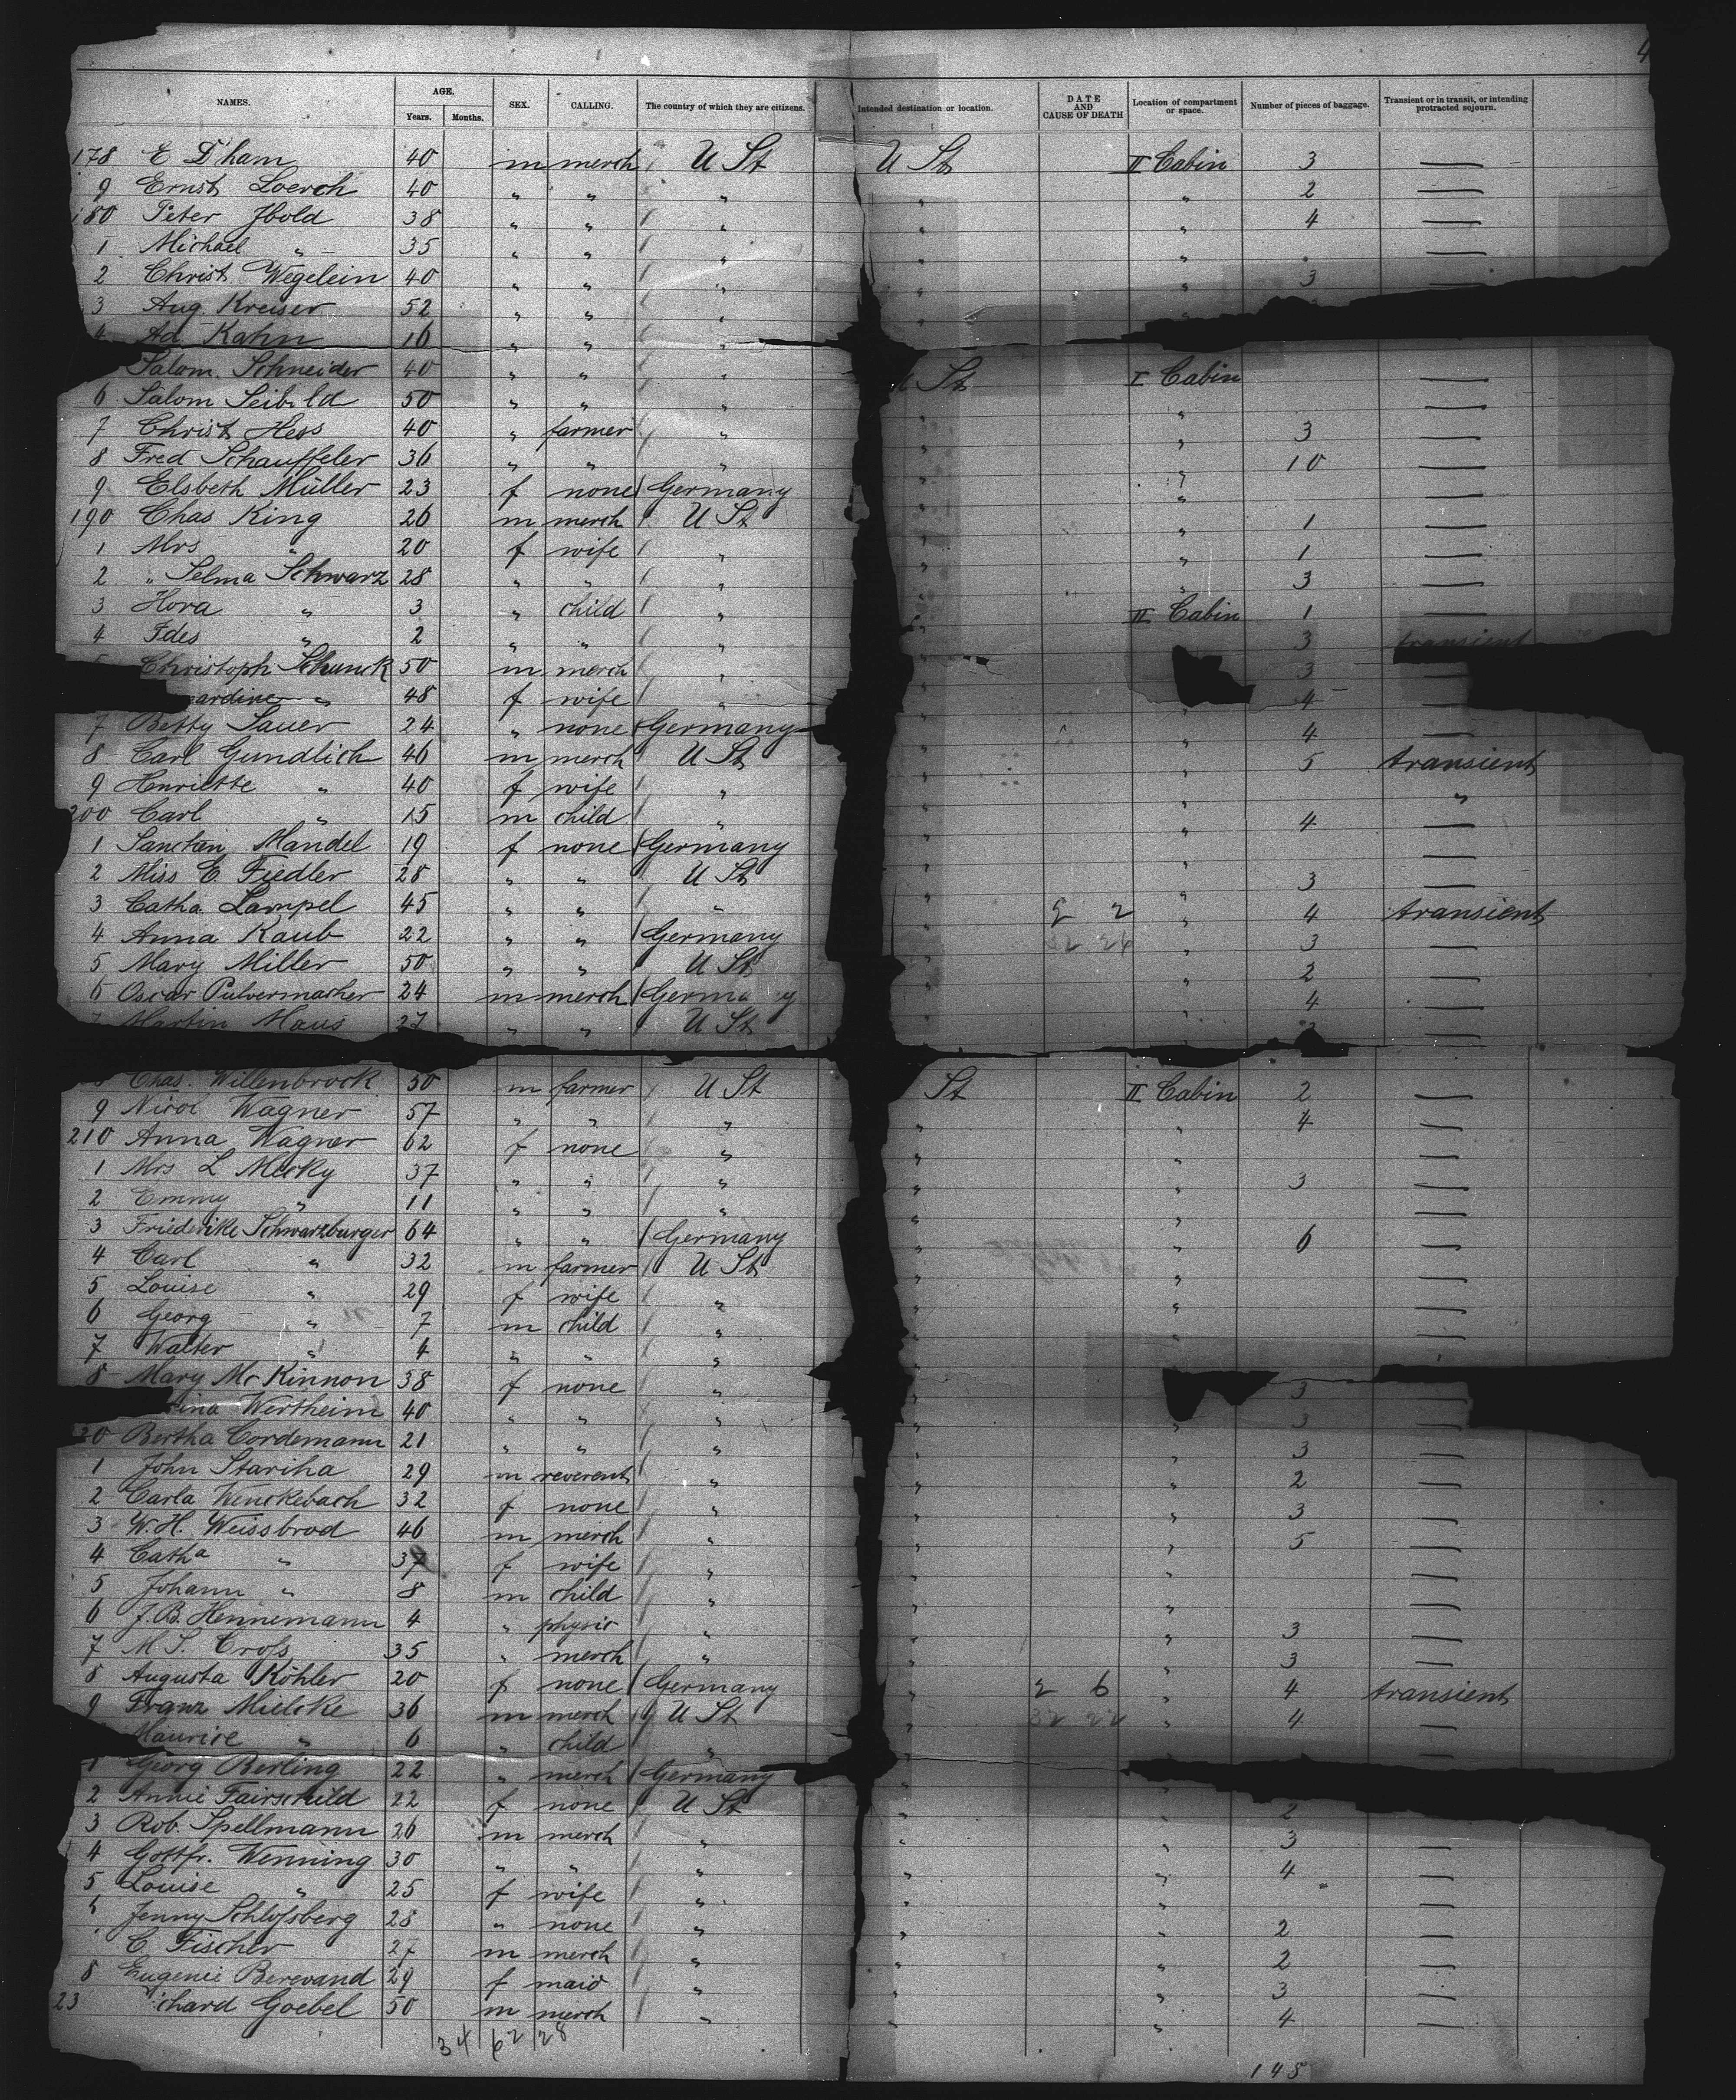 4
NAMES. AGE. Years. Months. SEX. CALLING. The country of which they are citizens. Intended destination or location. DATE AND CAUSE OF DEATH Location of compartment or space. Number of pieces of baggage. Transient or in transit, or intending protracted sojourn.
178 E D'ham 40 m merch U St U St II Cabin 3 —
9 Ernst Loerch 40 " " " " " 2 —
180 Peter Jbold 38 " " " " " 4 —
1 Michael " 35 " " " " " —
2 Christ Wegelein 40 " " " " " 3 —
3 Aug Kreiser 52 " " " "
4 Ad. Kahn 16 " " "
Salom. Schneider 40 " " " St I Cabin —
6 Salom Seibold 50 " " " " " —
7 Christ Hess 40 " farmer " " " 3 —
8 Fred Schauffeler 36 " " " " " 10 —
9 Elsbeth Müller 23 f none Germany " " —
190 Chas King 26 m merch U St " " 1 —
1 Mrs " 20 f wife " " " 1 —
2 " Selma Schwarz 28 " " " " " 3 —
3 Hora " 3 " child " " II Cabin 1 —
4 Fdes " 2 " " " " 3 transient
Christoph Schunck 50 m merch " 3
ardine " 48 f wife " " 4
7 Betty Sauer 24 " none Germany " " 4 —
8 Carl Gundlich 46 m merch U St " " 5 transient
9 Henriette " 40 f wife " " " "
200 Carl " 15 m child " " " 4 "
1 Sanchen Mandel 19 f none Germany " " —
2 Miss E. Fiedler 28 " " U St " " 3 —
3 Catha. Lampel 45 " " " " 2 " 4 transient
4 Anna Kaub 22 " " Germany " " 3 —
5 Mary Miller 50 " " U St " " 2 —
6 Oscar Pulvermacher 24 m merch Germa y " " 4 —
7 Martin Maus 27 " " U St " " —
Chas. Willenbrock 50 m farmer U St St II Cabin 2 —
9 Nicol Wagner 57 " " " " " 4 —
210 Anna Wagner 62 f none " " " —
1 Mrs L Merky 37 " " " " " 3 —
2 Emmy " 11 " " " " " —
3 Friederike Schwarzburger 64 " " Germany " " 6 —
4 Carl " 32 m farmer U St " " —
5 Louise " 29 f wife " " " —
6 Georg " 7 m child " " " —
7 Walter " 4 " " " " "
8 Mary McKinnon 38 f none " " 3 —
ina Wertheim 40 " " " " " 3 —
20 Bertha Cordemann 21 " " " " " 3 —
1 John Stariha 29 m reverent " " " 2 —
2 Carla Wenckebach 32 f none " " " 3 —
3 W. H. Weissbrod 46 m merch " " " 5 —
4 Catha " 37 f wife " " " —
5 Johann " 8 m child " " " —
6 J. B. Hennemann 4 " physic " " " 3 —
7 M S. Cross 35 " merch " " " 3 —
8 Augusta Köhler 20 f none Germany " 2 6 " 4 transient
9 Franz Mielcke 36 m merch U St " 32 22 " 4 —
Maurice " 6 " child " " " —
1 Georg Berling 22 " merch Germany "
2 Annie Fairschild 22 f none U St " " 2
3 Rob. Spellmann 26 m merch " " " 3 —
4 Gottfr. Wenning 30 " " " " " 4 —
5 Louise " 25 f wife " " " —
Jenny Schlossberg 28 " none " " " 2 —
C. Fischer 27 m merch " " " 2 —
8 Eugenie Berevand 29 f maid " " " 3 —
23 chard Goebel 50 m merch " " " 4 —
34 62 28
148